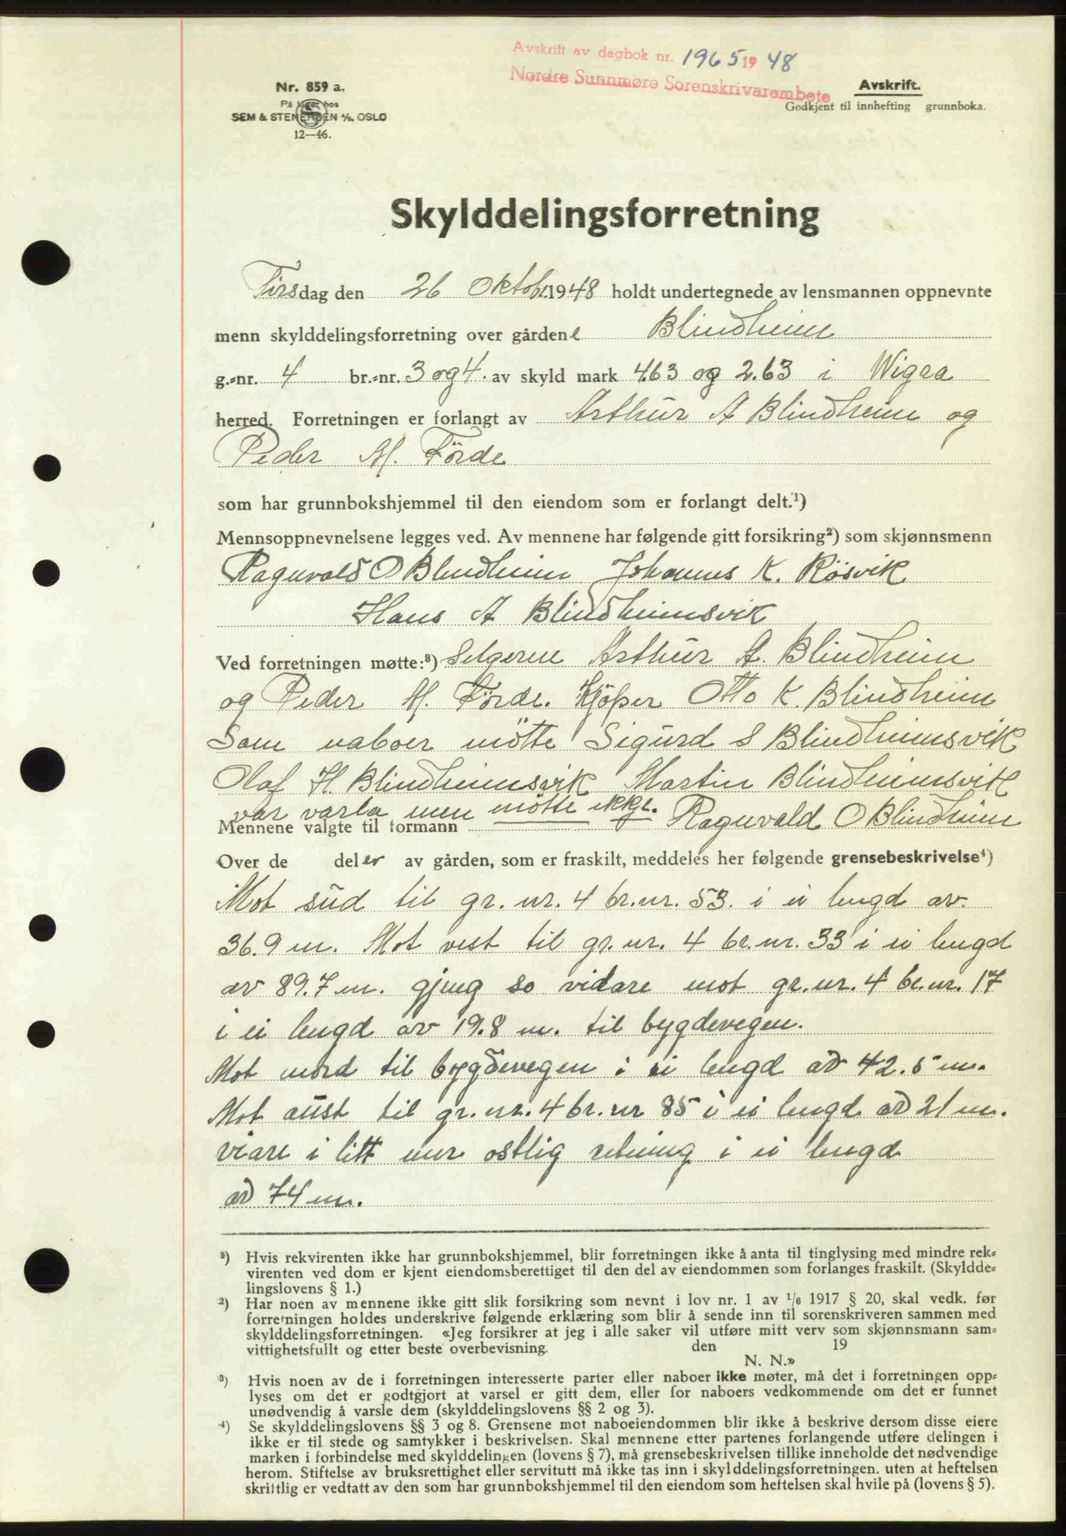 Avskrift av dagbok nr. 1965 1948
Nordre Sunnmøre Sorenskrivarembete
Nr. 859 a.
På lager hos
SEM & STENERSEN A/S, OSLO
12—46.
Avskrift.
Godkjent til innhefting grunnboka.
Skylddelingsforretning
Tirsdag den 26 Oktob. 1948 holdt undertegnede av lensmannen oppnevnte
menn skylddelingsforretning over gårdene Blindheim
g.-nr. 4 br.-nr. 3 og 4. av skyld mark 4.63 og 2.63 i Wigra
herred. Forretningen er forlangt av Arthur A Blindheim og
Peder M. Förde
som har grunnbokshjemmel til den eiendom som er forlangt delt.¹)
Mennsoppnevnelsene legges ved. Av mennene har følgende gitt forsikring²) som skjønnsmenn
Ragnvald O Blindheim Johannes K. Rösvik
Hans A Blindheimsvik
Ved forretningen møtte:³) Selgerne Arthur A. Blindheim
og Peder M. Förde. Kjöper Otto K. Blindheim
Som naboer mötte Sigurd S Blindheimsvik
Olaf H. Blindheimsvik Martin Blindheimsvik
var varla men mötte ikkje.
Mennene valgte til formann Ragnvald O Blindheim
Over de deler av gården, som er fraskilt, meddeles her følgende grensebeskrivelse⁴)
Mot süd til gr. nr. 4 br. nr. 53. i ei lengd av
36.9 m. Mot vest til gr. nr. 4 br. nr. 33 i ei lengd
av 89.7 m. gjeng so vidare mot gr. nr. 4 br. nr. 17
i ei lengd av 19.8 m. til bygdevegen.
Mot nord til bygdevegen i ei lengd av 42.5 m.
Mot aust til gr. nr. 4 br. nr 85 i ei lengd av 21 m.
viare i litt mer ostlig retning i ei lengd
av 74 m.
¹) Hvis rekvirenten ikke har grunnbokshjemmel, blir forretningen ikke å anta til tinglysing med mindre rek-
virenten ved dom er kjent eiendomsberettiget til den del av eiendommen som forlanges fraskilt. (Skyldde-
lingslovens § 1.)
²) Har noen av mennene ikke gitt slik forsikring som nevnt i lov nr. 1 av 1/6 1917 § 20, skal vedk. før
forretningen holdes underskrive følgende erklæring som blir å sende inn til sorenskriveren sammen med
skylddelingsforretningen. «Jeg forsikrer at jeg i alle saker vil utføre mitt verv som skjønnsmann sam-
vittighetsfullt og etter beste overbevisning. den 19
N. N.»
³) Hvis noen av de i forretningen interesserte parter eller naboer ikke møter, må det i forretningen opp-
lyses om det er godtgjort at varsel er gitt dem, eller for naboers vedkommende om det er funnet
unødvendig å varsle dem (skylddelingslovens §§ 2 og 3).
⁴) Se skylddelingslovens §§ 3 og 8. Grensene mot naboeiendommen blir ikke å beskrive dersom disse eiere
ikke er til stede og samtykker i beskrivelsen. Skal mennene etter partenes forlangende utføre delingen i
marken i forbindelse med skylddelingen (lovens § 7), må grensebeskrivelsen tillike inneholde det nødvendige
herom. Stiftelse av bruksrettighet eller servitutt må ikke tas inn i skylddelingsforretningen. uten at heftelsen
skriftlig er vedtatt av den som har grunnbokshjemmel til den eiendom som heftelsen skal hvile på (lovens § 5).